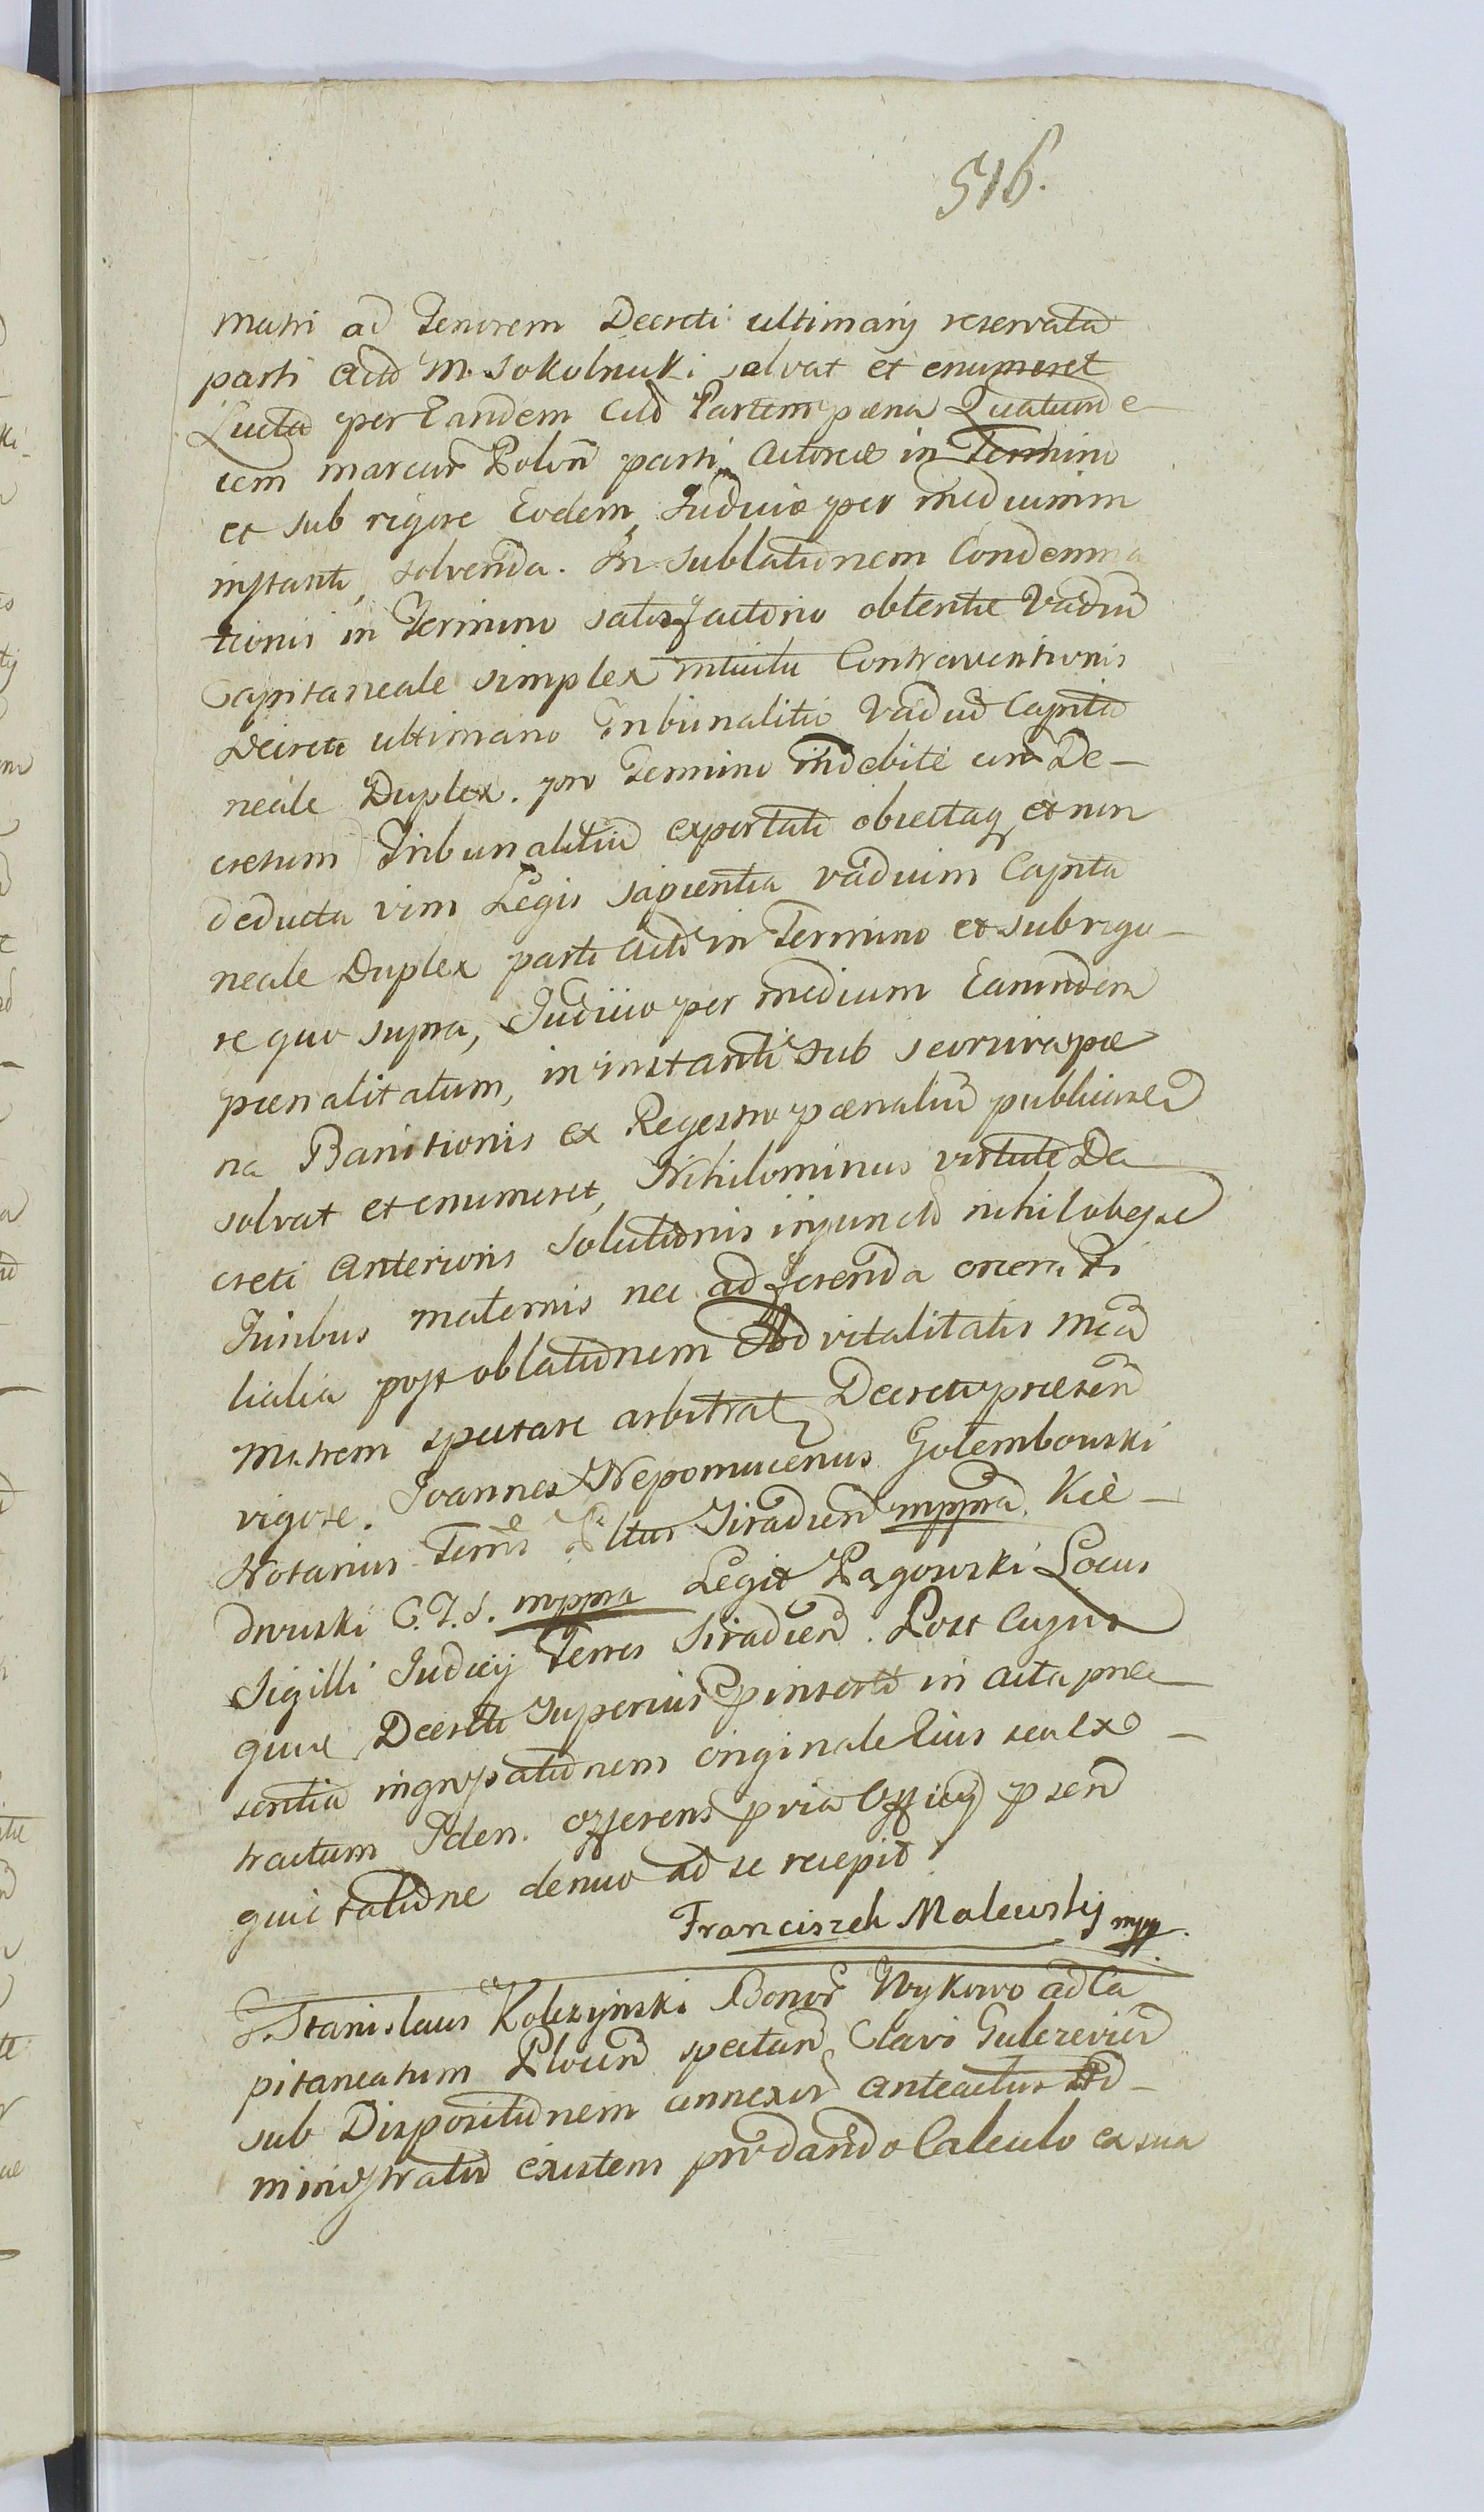 516.
matri ad Tenorem Decreti ultimarij reservata
parti Acto M. Sokolnicki solvat et enumeret
Lucta per Eandem Cito Partem pœna Quatuorde
cem marcar Polon parti Actoreæ in Termino
et sub rigore Eodem, Judicio per medium im
instanti, solvenda. In sublationem Condemna
tionis in Termino satisfactorio obtentæ Vadiu
Capitaneale simplex intuitu Contraventionis
Decreti ultimario Tribunalitio Vadiu Capita
neale Duplex. pro Termino indebite cum De-
cretum Tribunalitiu exportati obiectaq et non
deducta vim Legis sapientia vadium Capita
neale Duplex parti Acto in Termino et sub rigo-
re quo supra, Judicio per medium Earundem
pœnalitatum, in instanti sub seorsiva pœ
na Banitionis ex Regestro pœnaliu publicare
solvat et enumeret, Nihilominus virtute De
creti Anterioris solutionis injuncto nihil obesse
Juribus maternis nec ad ferenda onera
lialia post oblationem Advitalitatis Mea
Matrem spectare arbitrat Decreti præsen
vigore. Joannes Nepomucenus Golembowski
Notarius Terris Siradien mppra. Kie-
drouski C.T.S. mppra Legit Pągowski Locus
Sigilli Judicij Terres Siradien. Post Cujus
quue Decreti Superius pinserti in Acta præ
sentia ingrossationem originale Eius seu Ex-
tractum Iden. offerens pria Officij psen
quietatione denuo ad se recepit
Franciszek Malewskij mpp.
G. Stanislaus Kolczynski Bonor Wykowo ad Ca
pitaneatum Plocen spectan Clavi Gulczevien
sub Dispositionem annexor anteactus Ad-
ministrator existens pro dando Calculo ex sua